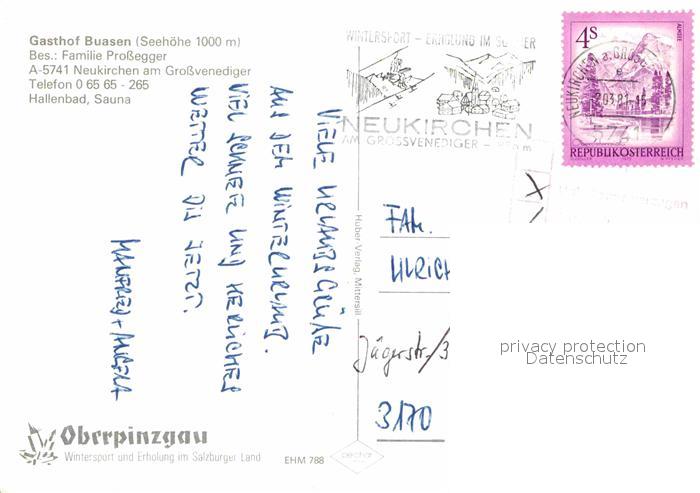 Gasthof Buasen (Seehöhe 1000 m)
Bes.: Familie Proßegger
A-5741 Neukirchen am Großvenediger
Telefon 0 65 65 - 265
Hallenbad, Sauna
WINTERSPORT - ERHOLUNG IM SOMMER
NEUKIRCHEN
AM GROSSVENEDIGER
4S
ALMSEE
NEUKIRCHEN a. GROSSV.
5741
REPUBLIK ÖSTERREICH
VIELE URLAUBSGRÜßE
AUS DEM WINTERURLAUB.
VIEL SCHNEE UND HERRLICHES
WETTER BIS JETZT.
MANFRED + ANGELA
Huber-Verlag, Mittersill
FAM.
ULRICH
Jägerstr. /3
3170
privacy protection
Datenschutz
Oberpinzgau
Wintersport und Erholung im Salzburger Land
EHM 788